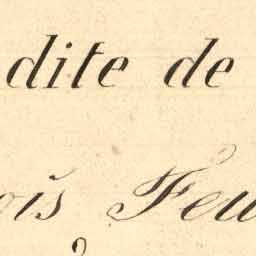 dite de
ois Feu